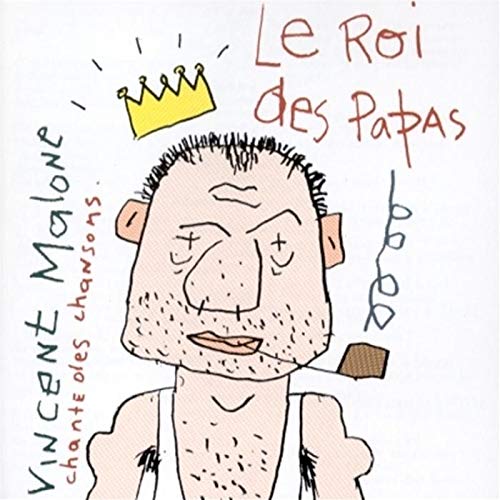 Le Roi
des Papas
Vincent Malone
chante des chansons.